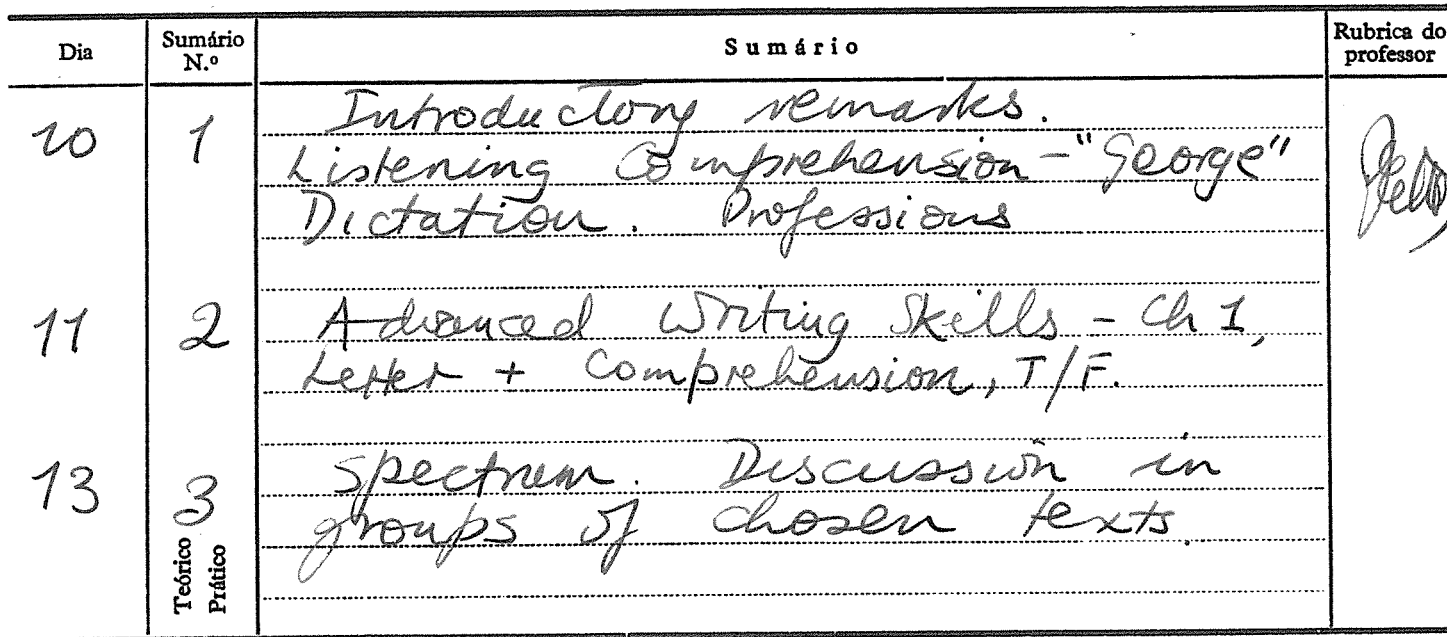 Dia Sumário N.º Sumário Rubrica do professor
10 1 Introductory remarks.
Listening Comprehension - "George"
Dictation. Professions
11 2 Advanced Writing Skills - Ch 1,
Letter + Comprehension, T/F.
13 3 Spectrum. Discussion in
groups of chosen texts.
Teórico
Prático